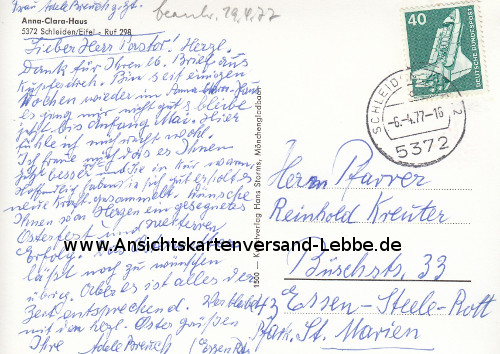 Frau Adele Breuich z.Zt.
beantw. 19.4.77
Anna-Clara-Haus
5372 Schleiden/Eifel - Ruf 298
Lieber Herr Pastor! Herzl.
Dank für Ihren lb. Brief aus
Bin seit einigen
Wochen wieder im Anna Haus
es ging mir nicht gut & bleibe
jetzt bis Anfang Mai. Hier
fühle ich mich recht wohl.
Ich freue mich das es Ihnen
jetzt besser Sie in Kur waren
Hoffentlich haben Sie sich gut erholt &
neue Kraft gesammelt. Wünsche
Ihnen von Herzen ein gesegnetes
Osterfest und weiteren
Erfolg.
läßt noch zu wünschen
übrig. Aber es ist alles der
Zeit entsprechend. Deshalb
mit den hzl. Oster grüßen
Ihre Adele Breuich (Essen
1500 — Kunstverlag Hans Storms, Mönchengladbach
40
DEUTSCHE BUNDESPOST
SCHLEIDEN
-6.-4.77-16
2
5372
Herrn Pfarrer
Reinhold Kreuter
Büschstr. 33
43 Essen-Steele-Rott
Pfark. St. Marien
www.Ansichtskartenversand-Lebbe.de